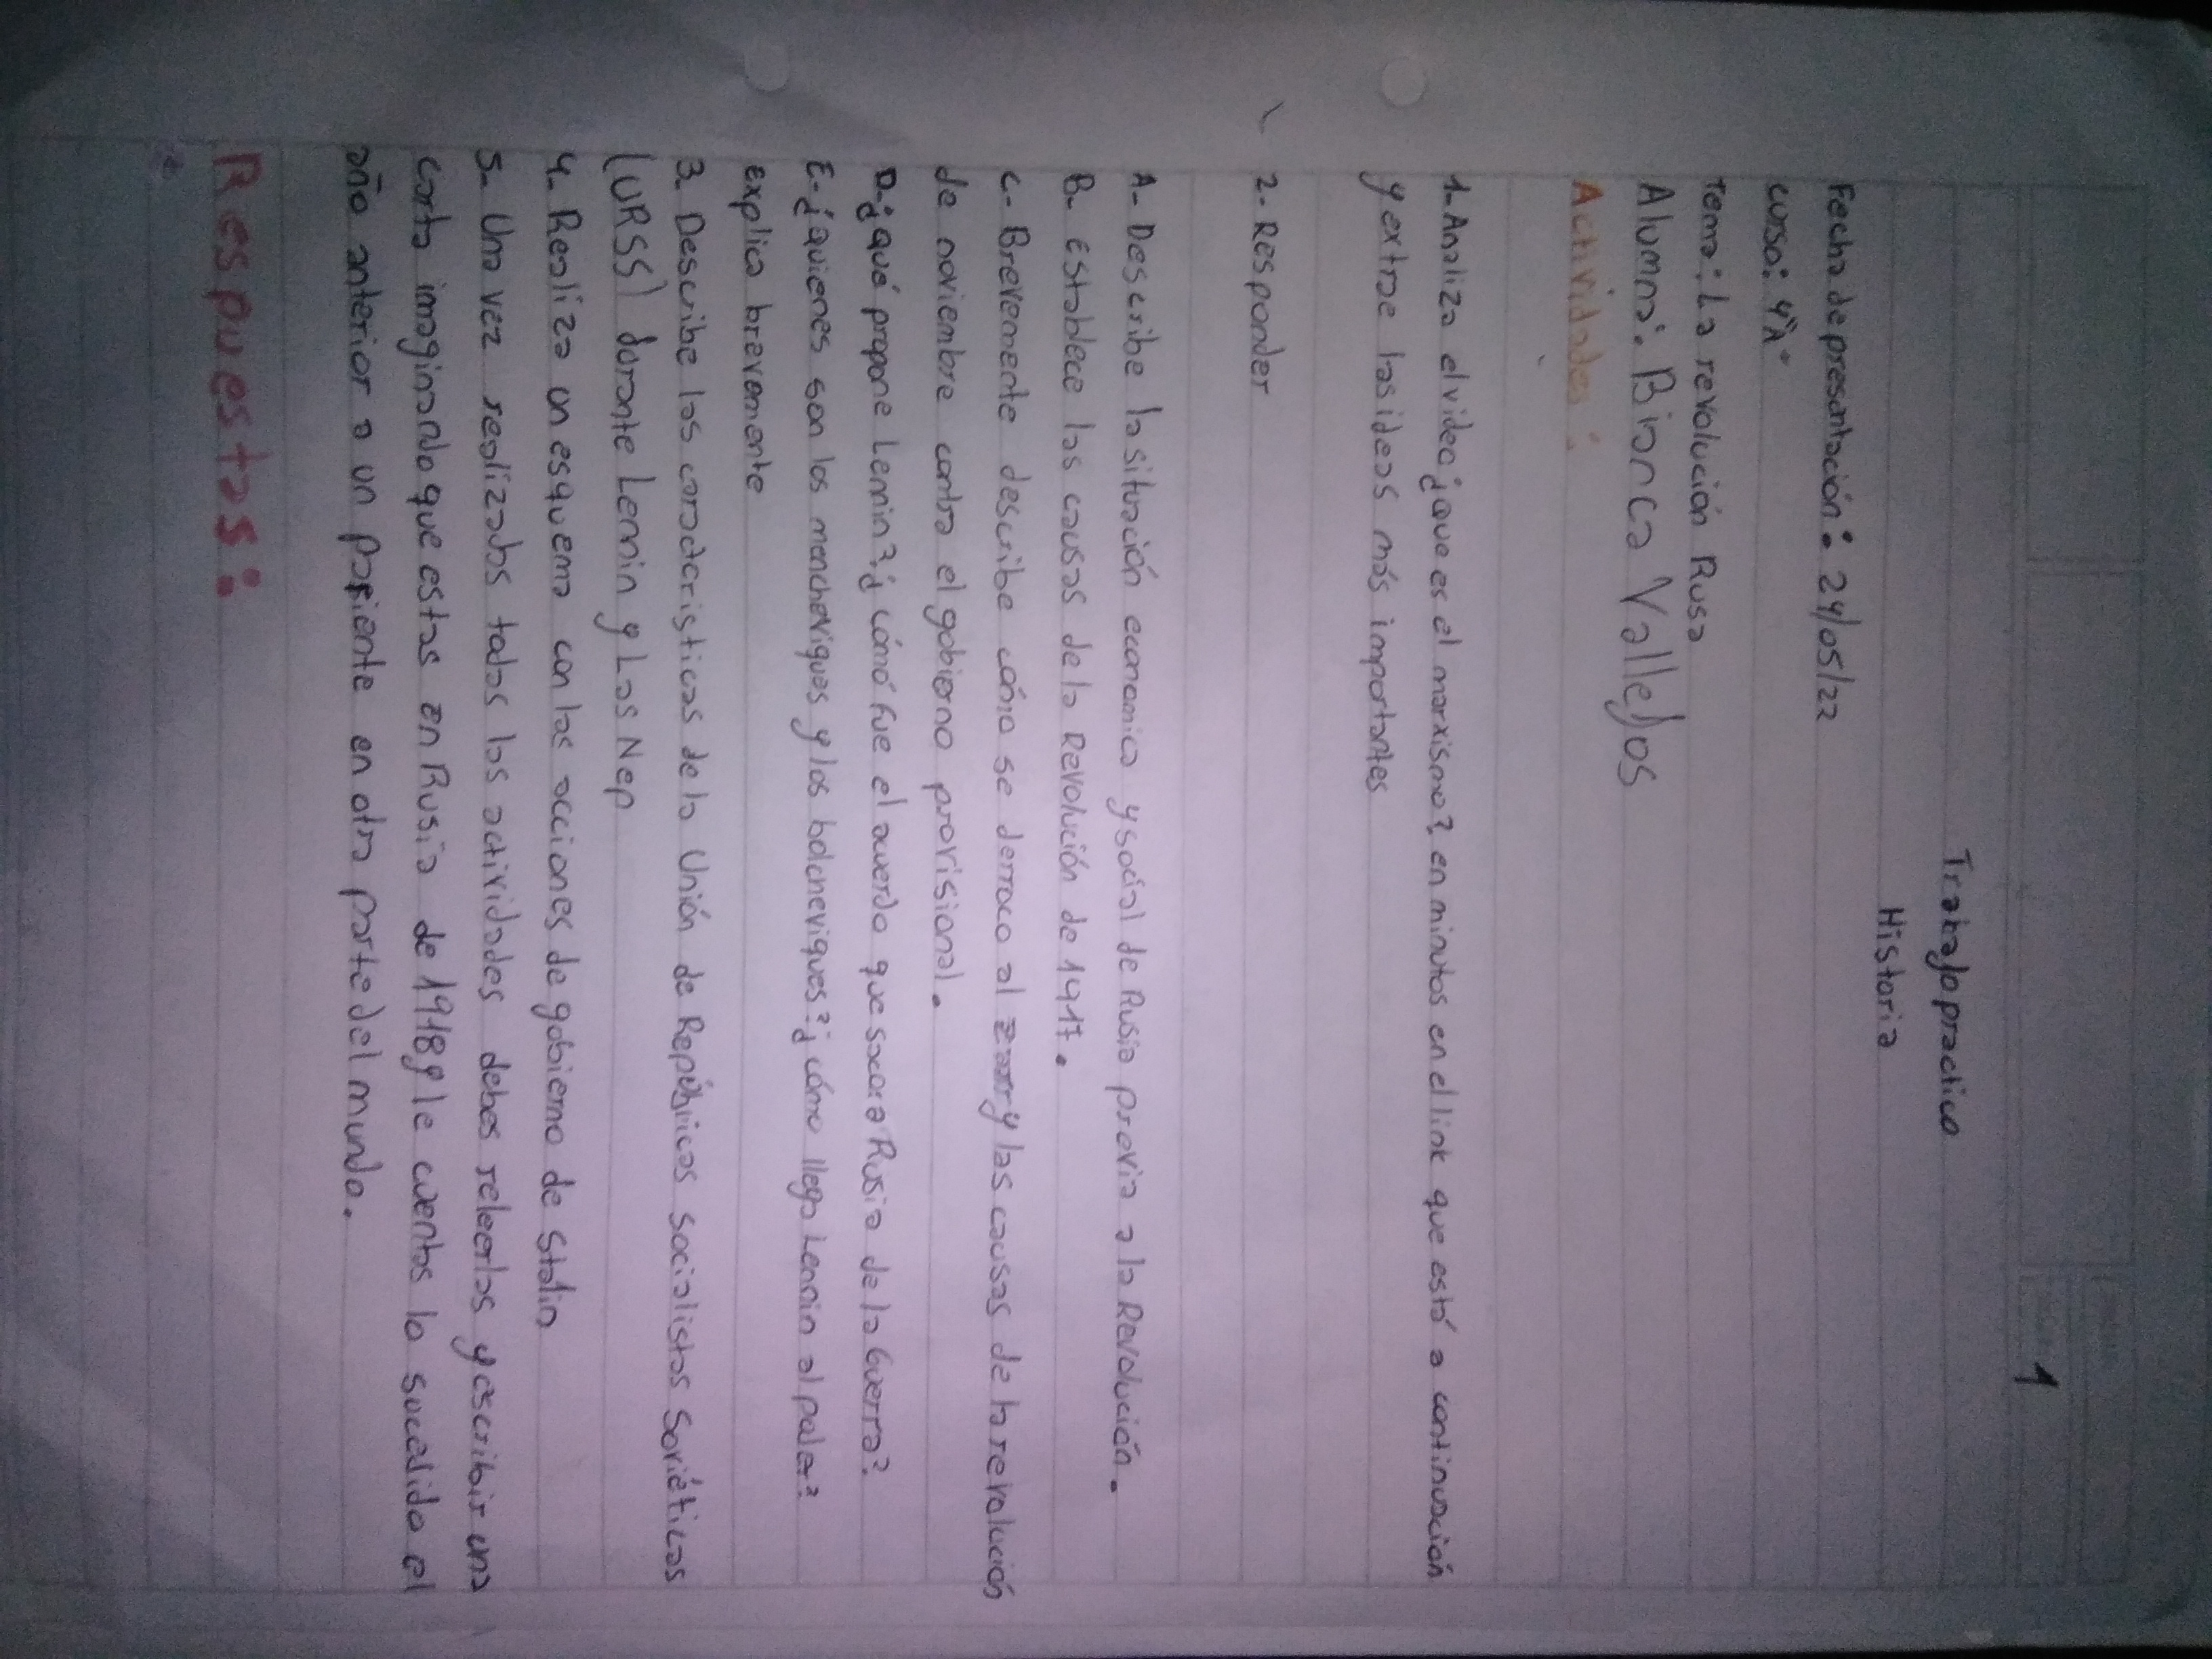 1
Trabajo practico
Historia
Fecha de presentación: 24/05/22
curso: 4"A"
Tema: La revolución Rusa
Alumna: Bianca Vallejos
Actividades:
1- Analiza el video ¿que es el marxismo? en minutos en el link que está a continuación
y extrae las ideas más importantes
2- Responder
A- Describe la situación economica y social de Rusia previa a la Revolución.
B- Establece las causas de la Revolución de 1917.
C- Brevemente describe cómo se derroco al zar y las causas de la revolución
de noviembre contra el gobierno provisional.
D- ¿qué propone Lennin? ¿cómo fue el acuerdo que saca a Rusia de la Guerra?
E- ¿quienes son los mencheviques y los bolcheviques? ¿cómo llega Lennin al poder?
explica brevemente
3- Describe las caracteristicas de la Unión de Repúblicas Socialistas Soviéticas
(URSS) durante Lennin y Las Nep
4- Realiza un esquema con las acciones de gobierno de Stalin
5- Una vez realizados todas las actividades debes releerlas y escribir una
carta imaginando que estas en Rusia de 1918 y le cuentas lo sucedido el
año anterior a un pariente en otra parte del mundo.
Respuestas: